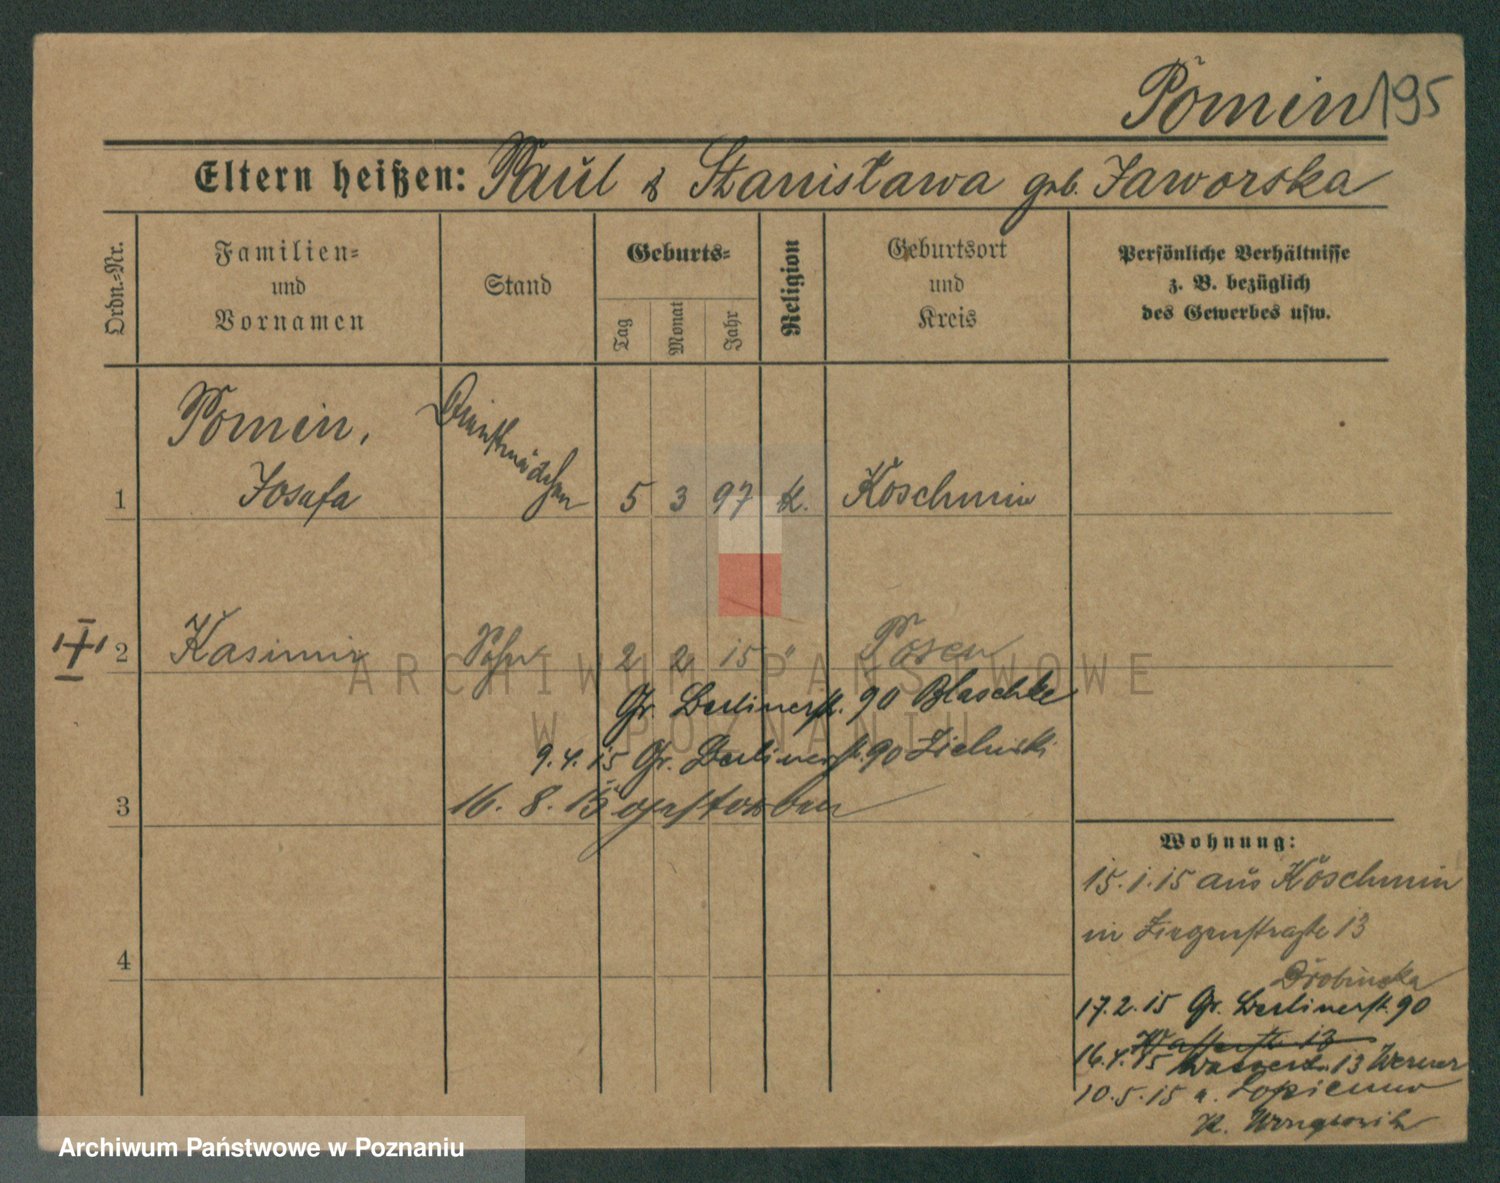 Pomin 195
Eltern heißen: Paul & Stanisława geb. Jaworska
Ordn.=Nr.
Familien=
und
Vornamen
Stand
Geburts=
Tag
Monat
Jahr
Religion
Geburtsort
und
Kreis
Persönliche Verhältnisse
z. B. bezüglich
des Gewerbes usw.
Pomin,
1 Josefa Dienstmädchen 5 3 97 k. Koschmin
2 Kasimir Sohn 2 2 15 " Posen
Gr. Berlinerstr. 90 Blaschke
9.4.15 Gr. Berlinerstr. 90 Zielinski
3 16. 8. 15 gestorben
Wohnung:
15.1.15 aus Koschmin
in Ziegenstraße 13
Drobinska
4
17.2.15 Gr. Berlinerstr. 90
Wasserstr. 13
16.4.15 Wasserstr. 13 Werner
10.5.15 n. Lopienno
K. Wongrowitz
ARCHIWUM PAŃSTWOWE
W POZNANIU
Archiwum Państwowe w Poznaniu